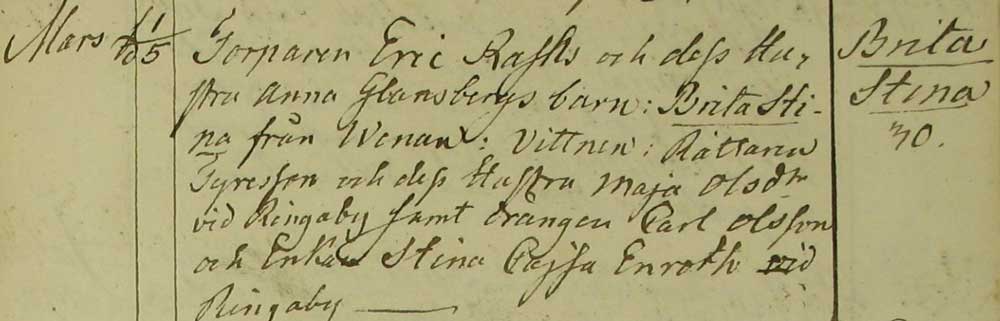 Mars 1/5
Torparen Eric Rasks och dess Hu-
stru Anna Glansbergs barn: Brita Sti-
na från Wenan: Vittnen: Rättaren
Tyresson och dess Hustru Maja Olsdtr
vid Ringaby samt drängen Carl Olsson
och Enkan Stina Cajsa Enroth vid
Ringaby
Brita
Stina
30.